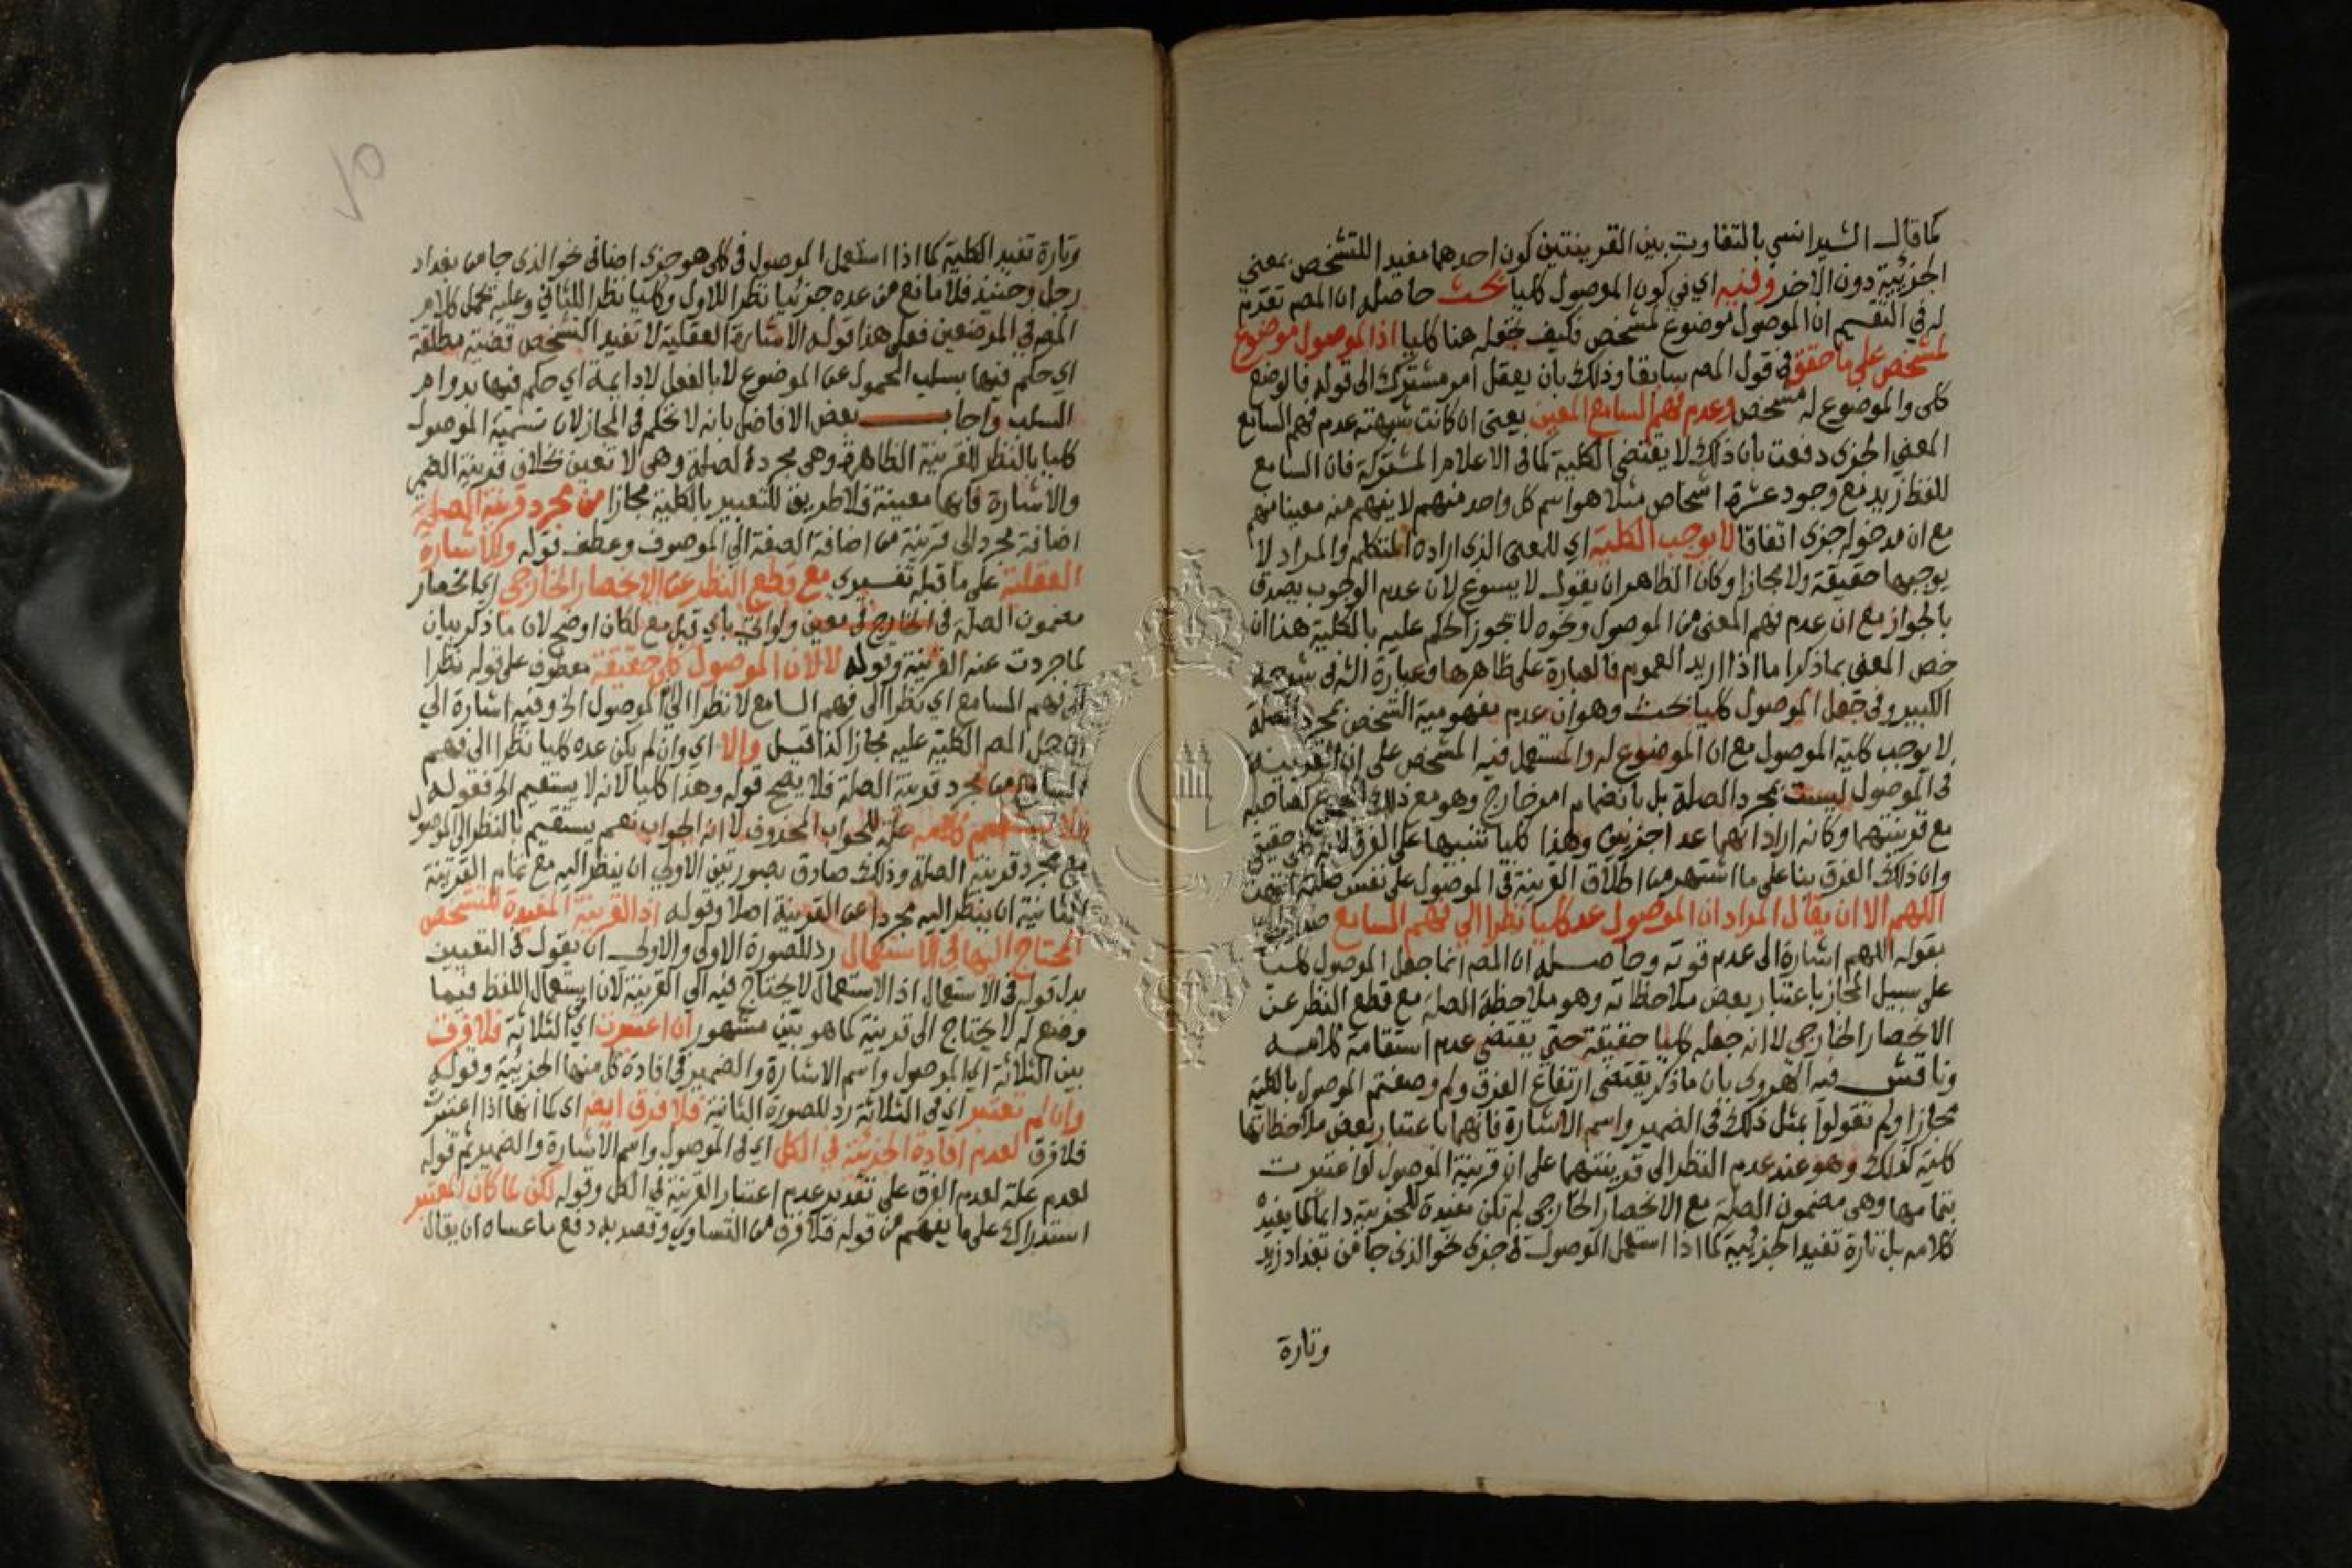 كما قال الشيرانسي بالتفاوت بين القرينتين كون احدهما مفيدا للتشخص بمعنى
الجزئية دون الاخر وفيه اي في كون الموصول كليا بحث حاصله ان المصم تقدم
له في التقسيم ان الموصول موضوع لمشخص فكيف يجعله هنا كليا اذ الموصول موضوع
لمشخص على ما حقق في قول المصم سابقا وذلك بان يعقل امر مشترك الى قوله فالوضع
كلى والموضوع له مشخص وعدم فهم السامع المعين يعنى ان كانت شبهته عدم فهم السامع
المعنى الجزى دفعت بان ذلك لا يقتضى الكلية كما فى الاعلام المشتركة فان السامع
للفظ زيد مع وجود عشرة اشخاص مثلا هو اسم كل واحد منهم لا يفهم منه معينا منهم
مع ان مدخوله جزى اتفاقا لا يوجب الكلية اي للمعنى الذى اراده المتكلم والمراد لا
يوجبها حقيقة ولا مجازا وكان الظاهر ان يقول لا يسوغ لان عدم الوجوب يصدق
بالجواز مع ان عدم فهم المعنى من الموصول ونحوه لا يجوز الحكم عليه بالكلية هذا ان
خص المعنى بما ذكر اما اذا اريد العموم فالعبارة على ظاهرها وعبارة الش فى شرحه
الكبير وفى جعل الموصول كليا بحث وهو ان عدم مفهومية الشخص بمجرد الصلة
لا يوجب كلية الموصول مع ان الموضوع له والمستعمل فيه المشخص على ان القرينة
فى الموصول ليست بمجرد الصلة بل بانضمام امر خارج وهو مع ذلك
مع قرينتهما وكانه اراد انهما عدا جزئيين وهذا كليا تنبيها على الفرق لانه كلى حقيقى
وان ذلك الفرق بنا على ما اشتهر من اطلاق القرينة فى الموصول على نفس صلته انتهت
اللهم الا ان يقال المراد ان الموصول عد كليا نظرا الي فهم السامع صدر
بقوله اللهم اشارة الى عدم قوته وحاصله ان المصم انما جعل الموصول كليا
على سبيل المجاز باعتبار بعض ملاحظاته وهو ملاحظة الصلة مع قطع النظر عن
الانحصار الخارجى لا انه جعله كليا حقيقة حتى يقتضى عدم استقامة كلامه
وناقش فيه الهروى بان ما ذكر يقتضى ارتفاع الفرق ولم وصفتم الموصول بالكلية
مجازا ولم تقولوا بمثل ذلك فى الضمير واسم الاشارة فانهما باعتبار بعض ملاحظاتهما
كلية كذلك وهو عند عدم النظر الى قرينتهما على ان قرينة الموصول لو اعتبرت
بتمامها وهى مضمون الصلة مع الانحصار الخارجى لم تكن مفيدة للجزئية دايما كما يفيده
كلامه بل تارة تفيد الجزئية كما اذا استعمل الموصول فى جزى نحو الذى جا من بغداد زيد
وتارة
وتارة تفيد الكلية كما اذا استعمل الموصول فى كلى هو جزى اضافى نحو الذى جا من بغداد
رجل وحينئذ فلا مانع من عده جزئيا نظرا للاول وكليا نظرا للثانى وعليه يحمل كلام
المصم في الموضعين فعلى هذا قوله الاشارة العقلية لا تفيد التشخص قضية مطلقة
اي حكم فيها بسلب المحمول عن الموضوع لا بالفعل لا دايمة اي حكم فيها بدوام
السلب واجاب بعض الافاضل بانه لا تحكم فى المجاز لان تسمية الموصول
كليا بالنظر للقرينة الظاهرة وهى مجردة الصلة وهى لا تعين بخلاف قرينة الضمير
والاشارة فانها معينة فلا طريق للتعبير بالكلية مجازا من مجرد قرينة الصلة
اضافة مجرد الى قرينة من اضافة الصفة الى الموصوف وعطف قوله والاشارة
العقلية على ما قبله تفسيرى مع قطع النظر عن الانحصار الخارجي اى انحصار
مضمون الصلة فى الخارج فى معين ولو اتى باي قبل مع لكان اوضح لان ما ذكر بيان
لما جردت عنه القرينة وقوله لا لان الموصول كلى حقيقة معطوف على قوله نظرا
الى فهم السامع اي نظرا الى فهم السامع لا نظرا الى الموصول الخ وفيه اشارة الي
ان حمل المصم الكلية عليه مجازا لذا قيل والا اي وان لم يكن عده كليا نظرا الى فهم
السامع من مجرد قرينة الصلة فلا يصح قوله وهذا كليا لانه لا يستقيم الخ فقوله
فلا يستقيم كلامه علة للجواب المحذوف لا انه الجواب نعم يستقيم بالنظر الى الموصول
مع مجرد قرينة الصلة وذلك صادق بصورتين الاولى ان ينظر اليه مع تمام القرينة
الثانية ان ينظر اليه مجردا عن القرينة اصلا وقوله اذ القرينة المفيدة للتشخص
المحتاج اليها في الاستعمال رد للصورة الاولى والاولى ان يقول فى التعيين
بدل قوله فى الاستعمال اذ الاستعمال لا يحتاج فيه الى القرينة لان استعمال اللفظ فيما
وضع له لا يحتاج الى قرينة كما هو بين مشهور ان اعتبرت اي الثلاثة فلا فرق
بين الثلاثة اي الموصول واسم الاشارة والضمير فى افادة كل منها الجزئية وقوله
وان لم تعتبر اي فى الثلاثة رد للصورة الثانية فلا فرق ايضا اى كما انها اذا اعتبرت
فلا فرق لعدم افادة الجزئية في الكل اي فى الموصول واسم الاشارة والضمير ثم قوله
لعدم علة لعدم الفرق على تقدير عدم اعتبار القرينة فى الكل وقوله لكن لما كان المعتبر
استدراك على ما يفهم من قوله فلا فرق من التساوي وقصد به دفع ما عساه ان يقال